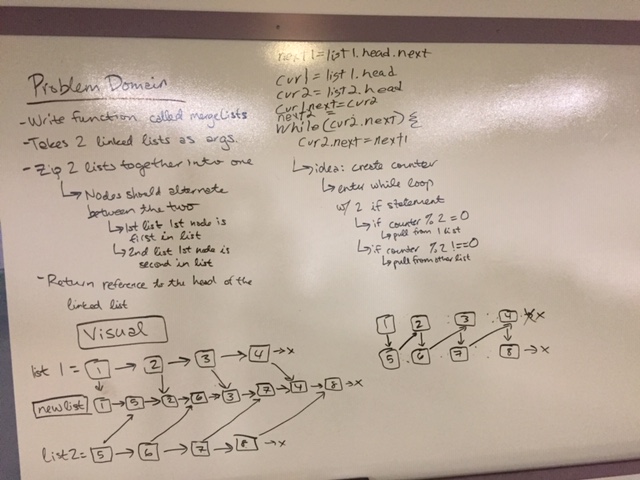 Problem Domain
- Write function called mergeLists
- Takes 2 linked lists as args.
- Zip 2 lists together into one
↳ Nodes should alternate
between the two
↳ 1st list 1st node is
first in list
↳ 2nd list 1st node is
second in list
- Return reference to the head of the
linked list
next1 = list1.head.next
cur1 = list1.head
cur2 = list2.head
cur1.next = cur2
next2 =
while (cur2.next) {
cur2.next = next1
↳ idea: create counter
↳ enter while loop
w/ 2 if statement
↳ if counter % 2 = 0
↳ pull from 1 list
↳ if counter % 2 !== 0
↳ pull from other list
Visual
list 1 = 1 → 2 → 3 → 4 → x
new list 1 → 5 → 2 → 6 → 3 → 7 → 4 → 8 → x
list2 = 5 → 6 → 7 → 8 → x
1 2 3 4 x
5 6 7 8 → x